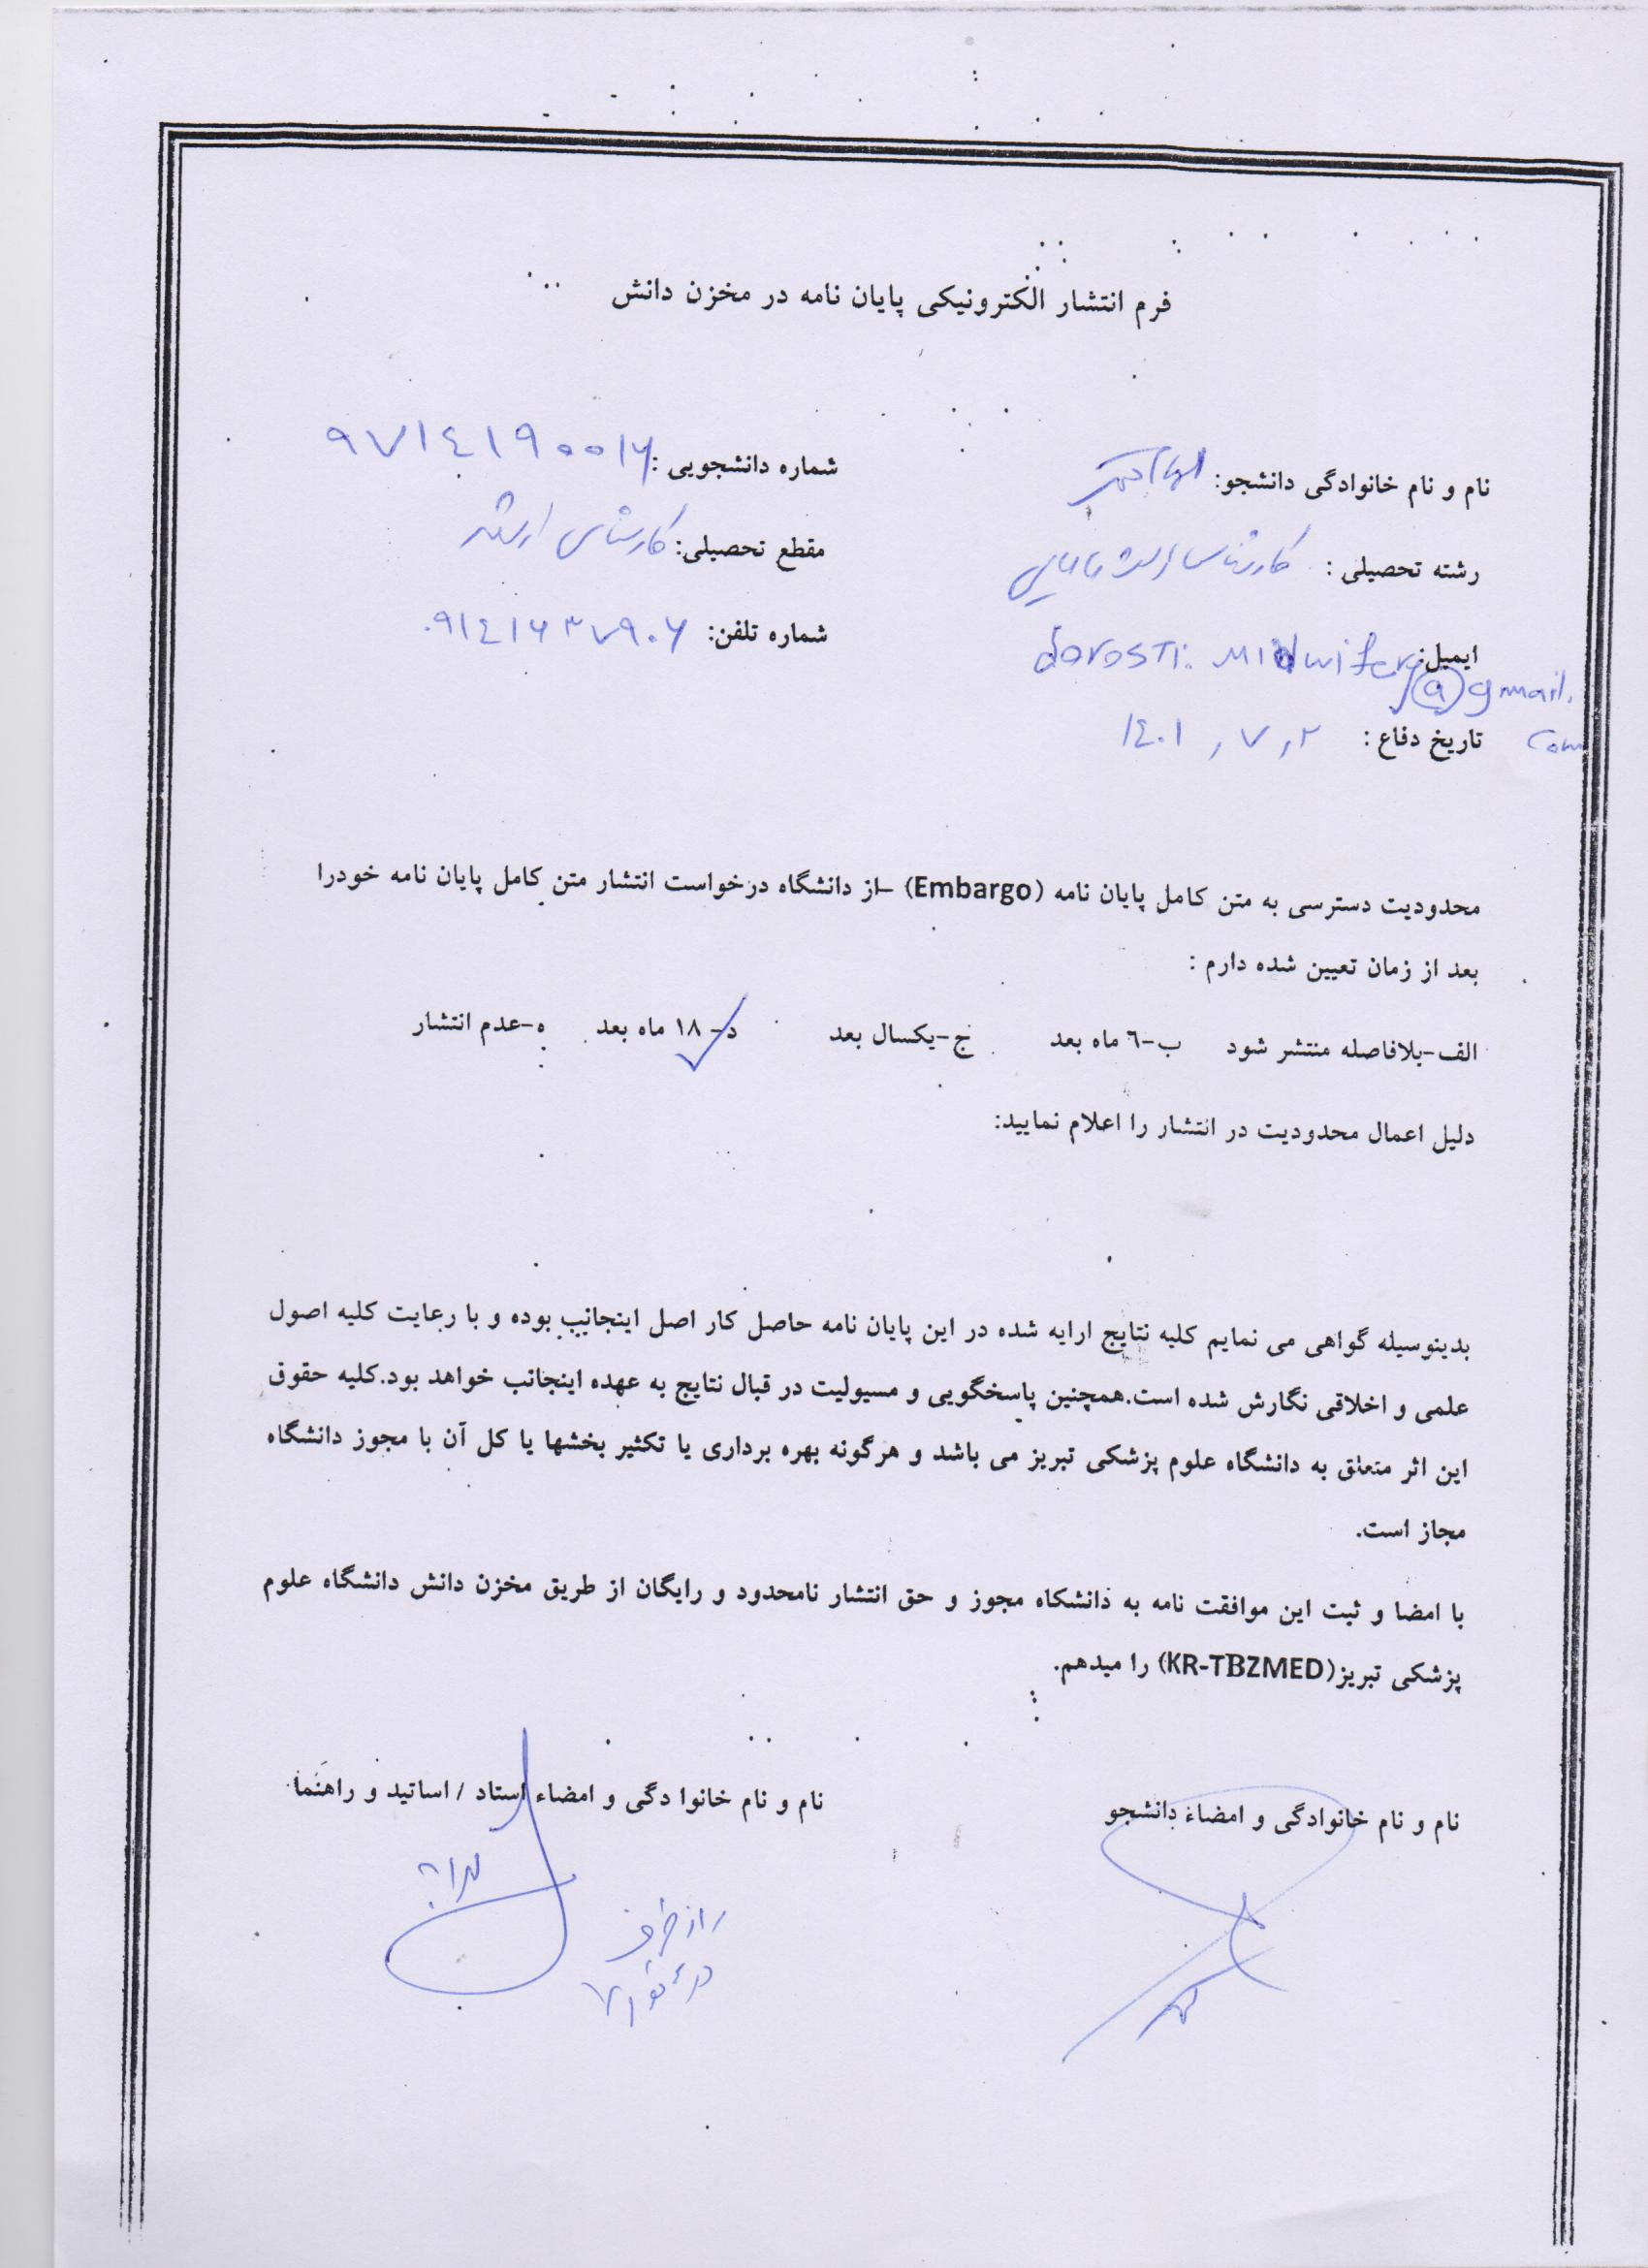 فرم انتشار الکترونیکی پایان نامه در مخزن دانش
نام و نام خانوادگی دانشجو: شماره دانشجویی: ۹۷۱٤۱۹۰۰۱۶
رشته تحصیلی : کارشناسی ارشد مامایی مقطع تحصیلی: کارشناسی ارشد
ایمیل: dorosti. Midwifery@gmail. شماره تلفن: ۰۹۱٤۱۶۳۷۹۰۶
com
تاریخ دفاع : ۱٤۰۱ , ۷ , ۲
محدودیت دسترسی به متن کامل پایان نامه (Embargo) –از دانشگاه درخواست انتشار متن کامل پایان نامه خودرا
بعد از زمان تعیین شده دارم :
الف-بلافاصله منتشر شود ب-٦ ماه بعد ج-یکسال بعد د- ۱۸ ماه بعد ✓ ه-عدم انتشار
دلیل اعمال محدودیت در انتشار را اعلام نمایید:
بدینوسیله گواهی می نمایم کلیه نتایج ارایه شده در این پایان نامه حاصل کار اصل اینجانب بوده و با رعایت کلیه اصول
علمی و اخلاقی نگارش شده است.همچنین پاسخگویی و مسیولیت در قبال نتایج به عهده اینجانب خواهد بود.کلیه حقوق
این اثر متعلق به دانشگاه علوم پزشکی تبریز می باشد و هرگونه بهره برداری یا تکثیر بخشها یا کل آن با مجوز دانشگاه
مجاز است.
با امضا و ثبت این موافقت نامه به دانشکاه مجوز و حق انتشار نامحدود و رایگان از طریق مخزن دانش دانشگاه علوم
پزشکی تبریز(KR-TBZMED) را میدهم.
نام و نام خانوادگی و امضاء دانشجو نام و نام خانوا دگی و امضاء استاد / اساتید و راهنما